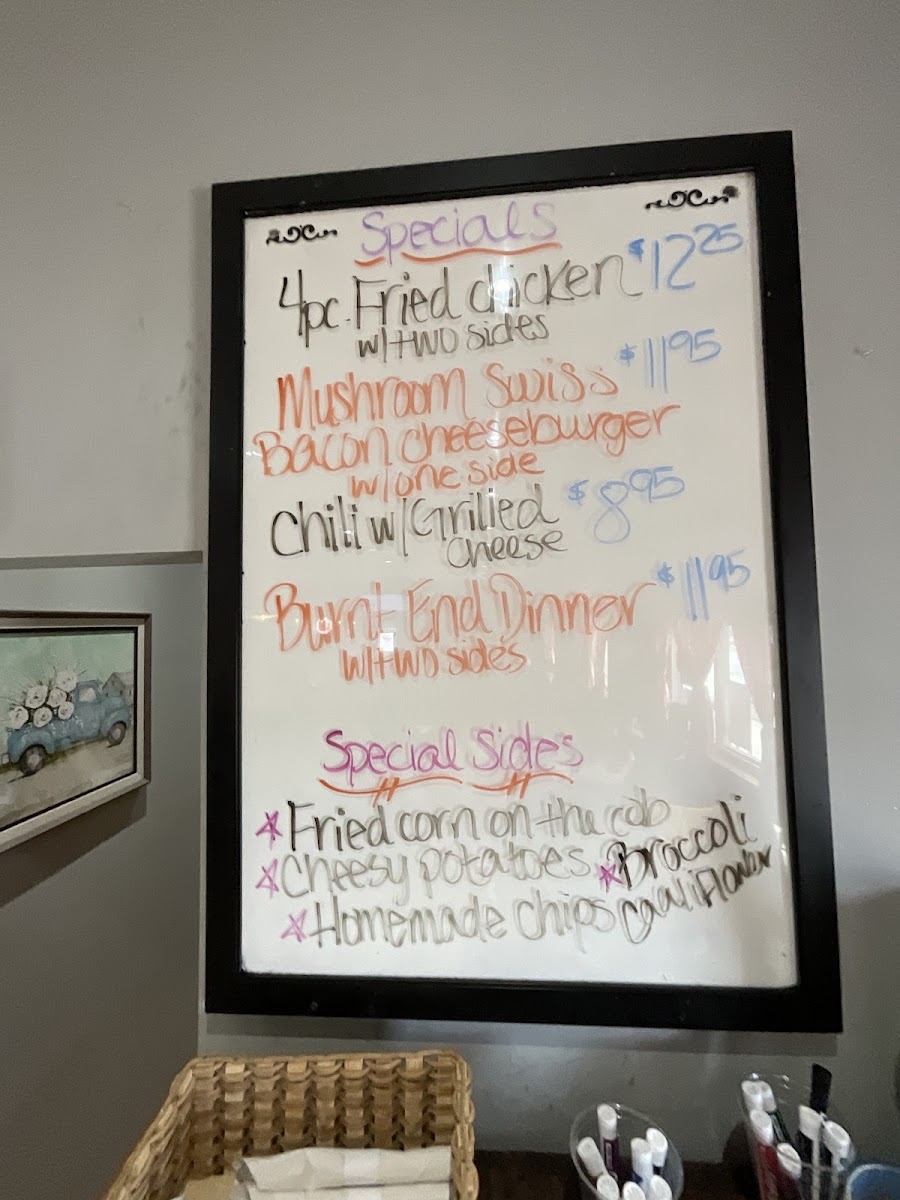 Specials
4pc. Fried chicken $12.25
w/two sides
Mushroom Swiss $11.95
Bacon cheeseburger
w/one side
Chili w/Grilled $8.95
cheese
Burnt End Dinner $11.95
w/two sides
Special Sides
Fried corn on the cob
Cheesy potatoes Broccoli
Homemade chips Cauliflower